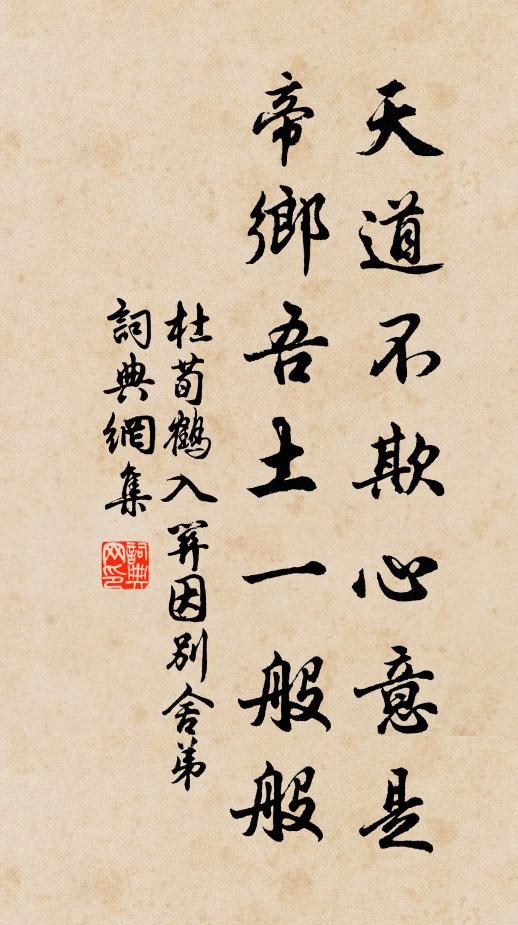 天道不欺心意是
帝鄉吾土一般般
杜荀鶴入關因別舍弟
詞典網集
詞典
网印